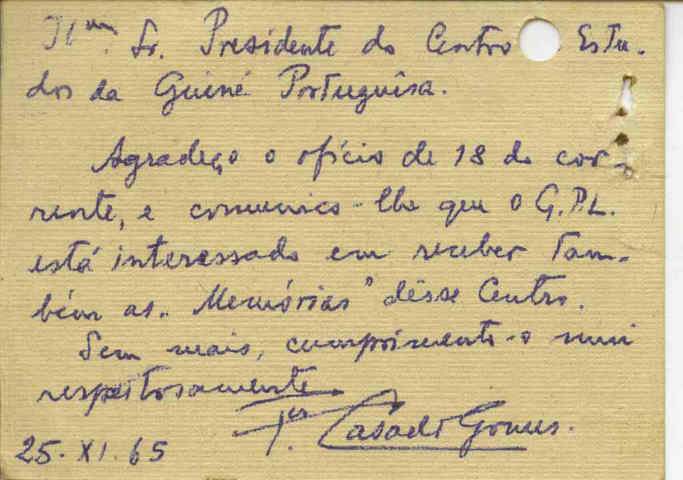 Il.mo Sr. Presidente do Centro Estu-
dos da Guiné Portuguêsa.
Agradeço o ofício de 18 do cor-
rente, e comunico-lhe que o G.P.L.
está interessado em receber tam-
bém as "Memórias" dêsse Centro.
Sem mais, cumprimento-o mui
respeitosamente
Casado Gomes.
25.XI.65